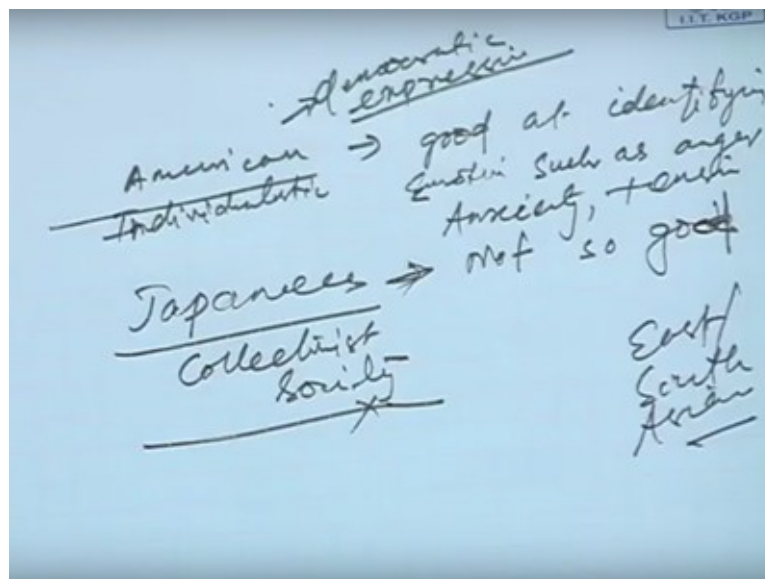 I.I.T. KGP
Democratic
expression
American → good at identifying
Individualistic Emotion such as anger
Anxiety, tension
Japanees → Not so good
Collectivist
Society
East/
South
Asian